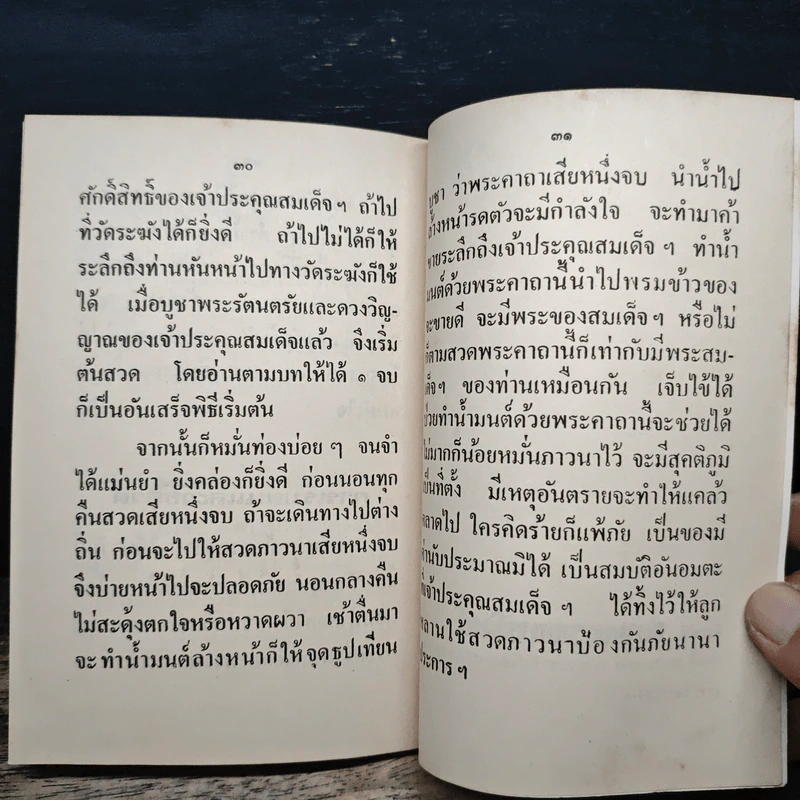 ๓๐
ศักดิ์สิทธิ์ของเจ้าประคุณสมเด็จ ฯ ถ้าไป
ที่วัดระฆังได้ก็ยิ่งดี ถ้าไปไม่ได้ก็ให้
ระลึกถึงท่านหันหน้าไปทางวัดระฆังก็ใช้
ได้ เมื่อบูชาพระรัตนตรัยและดวงวิญ-
ญาณของเจ้าประคุณสมเด็จแล้ว จึงเริ่ม
ต้นสวด โดยอ่านตามบทให้ได้ ๑ จบ
ก็เป็นอันเสร็จพิธีเริ่มต้น
จากนั้นก็หมั่นท่องบ่อย ๆ จนจำ
ได้แม่นยำ ยิ่งคล่องก็ยิ่งดี ก่อนนอนทุก
คืนสวดเสียหนึ่งจบ ถ้าจะเดินทางไปต่าง
ถิ่น ก่อนจะไปให้สวดภาวนาเสียหนึ่งจบ
จึงบ่ายหน้าไปจะปลอดภัย นอนกลางคืน
ไม่สะดุ้งตกใจหรือหวาดผวา เช้าตื่นมา
จะ ทำน้ำมนต์ล้างหน้าก็ให้จุดธูปเทียน
๓๑
บูชา ว่าพระคาถาเสียหนึ่งจบ นำน้ำไป
ล้างหน้ารดตัวจะมีกำลังใจ จะทำมาค้า
ขายระลึกถึงเจ้าประคุณสมเด็จ ฯ ทำน้ำ
มนต์ด้วยพระคาถานี้นำไปพรมข้าวของ
จะขายดี จะมีพระของสมเด็จ ฯ หรือไม่
ก็ตามสวดพระคาถานี้ก็เท่ากับมีพระสม-
เด็จฯ ของท่านเหมือนกัน เจ็บไข้ได้
ป่วยทำน้ำมนต์ด้วยพระคาถานี้จะช่วยได้
ไม่มากก็น้อยหมั่นภาวนาไว้ จะมีสุคติภูมิ
เป็นที่ตั้ง มีเหตุอันตรายจะทำให้แคล้ว
คลาดไป ใครคิดร้ายก็แพ้ภัย เป็นของมี
ค่านับประมาณมิได้ เป็นสมบัติอันอมตะ
เจ้าประคุณสมเด็จ ฯ ได้ทิ้งไว้ให้ลูก
หลานใช้สวดภาวนาป้องกันภัยนานา
ประการ ฯ